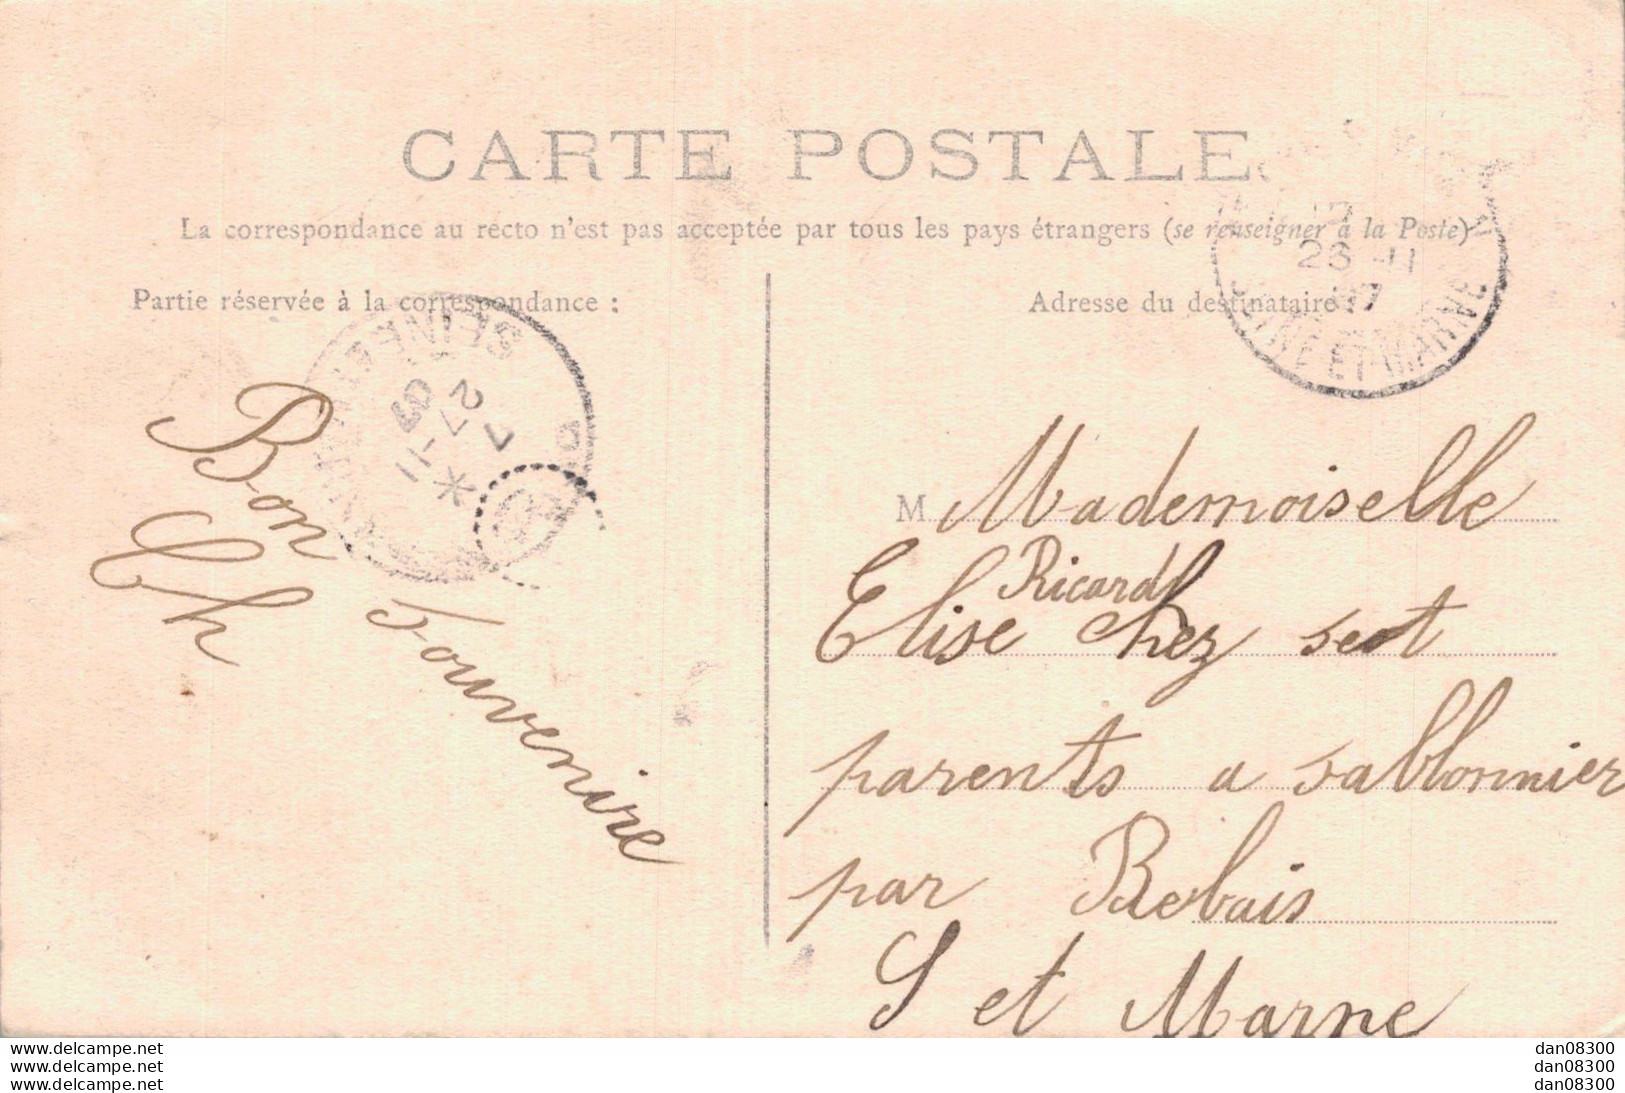 CARTE POSTALE
La correspondance au recto n'est pas acceptée par tous les pays étrangers (se renseigner à la Poste)
Partie réservée à la correspondance :
Adresse du destinataire
SEINE ET MARNE
28 - 11
07
SEINE
7
27 - 11
07
Bon Souvenire
Ch
M Mademoiselle
Ricard
Elise chez sest
parents a sablonnier
par Rebais
S et Marne
www.delcampe.net
www.delcampe.net
www.delcampe.net
dan08300
dan08300
dan08300